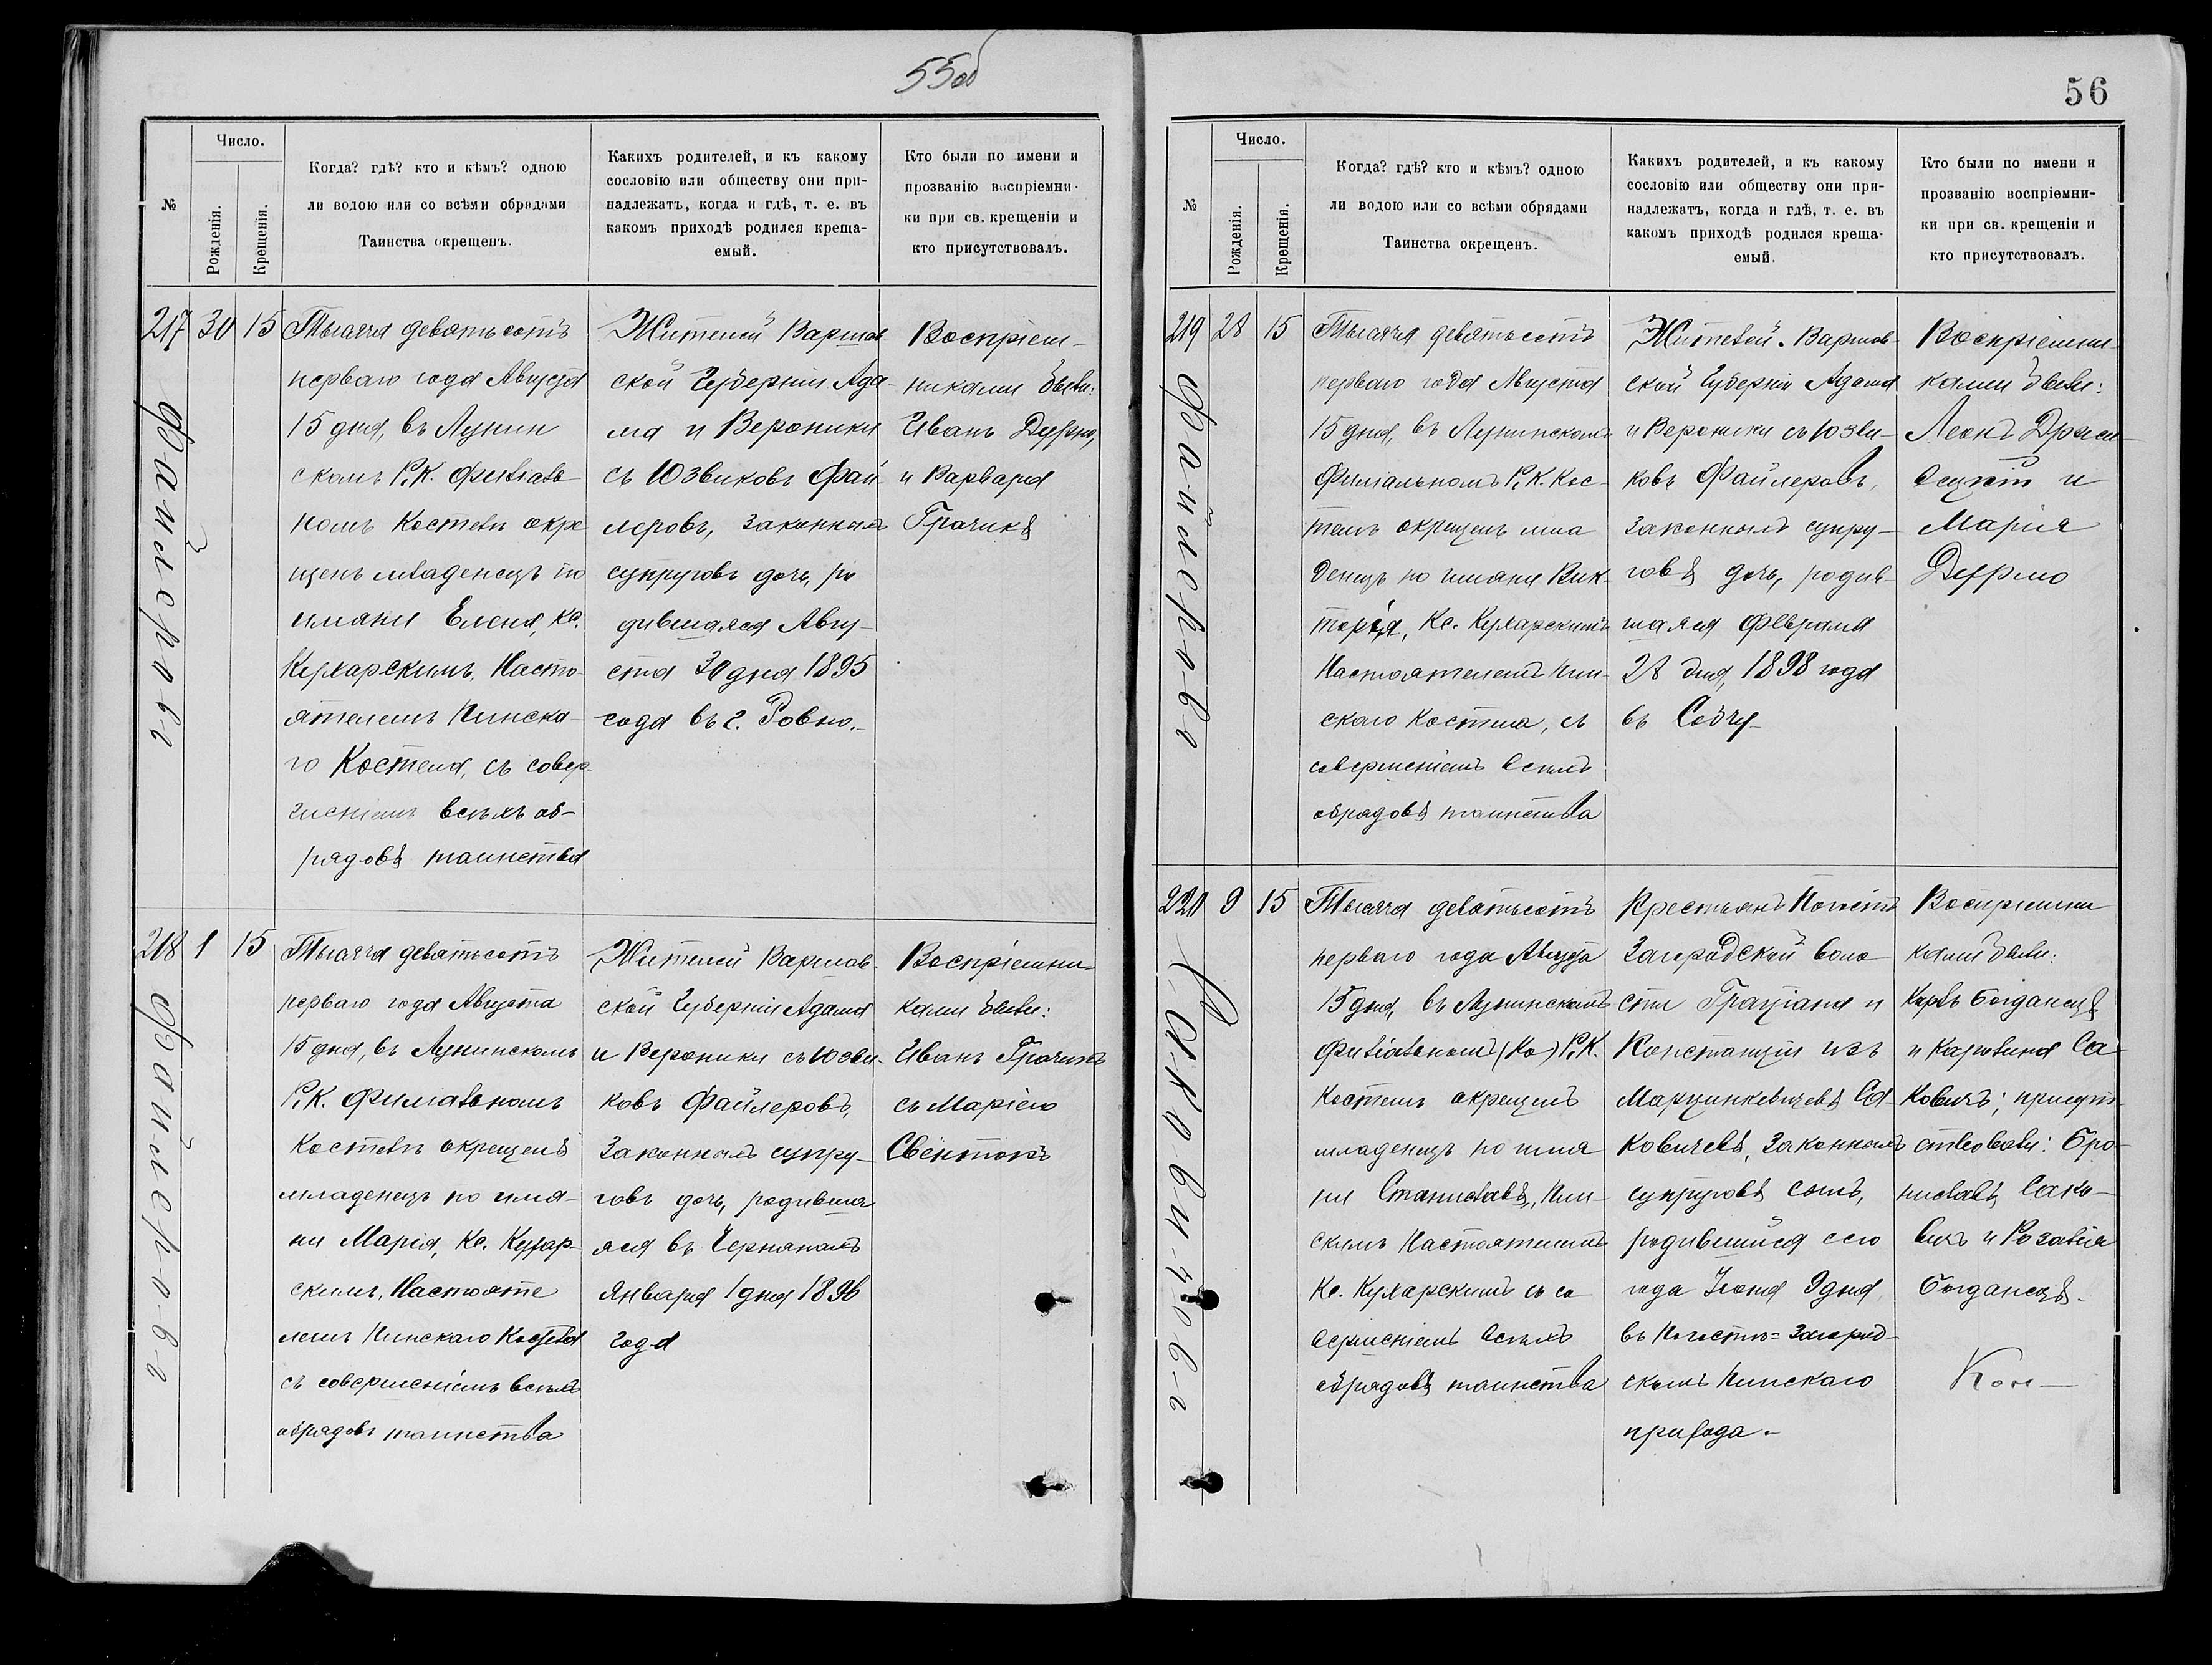 55об
№
Число.
Рожденія.
Крещенія.
Когда? гдѣ? кто и кѣмъ? одною
ли водою или со всѣми обрядами
Таинства окрещенъ.
Какихъ родителей, и къ какому
сословію или обществу они при-
надлежатъ, когда и гдѣ, т. е. въ
какомъ приходѣ родился креща-
емый.
Кто были по имени и
прозванію воспріемни-
ки при св. крещеніи и
кто присутствовалъ.
217 30 15
Файлерова
Тысяча девятьсотъ
перваго года Августа
15 дня, въ Лунин
скомъ Р. К. Филіаль
номъ Костелѣ окре
щенъ младенецъ по
имяни Елена, Кс.
Кухарскимъ, Насто-
ятелемъ Пинска-
го Костела, съ совер-
шеніемъ всѣхъ об-
рядовъ таинства
Жителей Варшав
ской Губерніи Ада-
ма и Вероники
съ Юзвиковъ Фай
леровъ, законныхъ
супруговъ дочь, ро
дившаяся Авгу-
ста 30 дня 1895
года въ г. Ровно.-
Воспріем-
никами были:
Иванъ
и Варвара
Грачикъ
218 1 15
Файлерова
Тысяча девятьсотъ
перваго года Августа
15 дня, въ Лунинскомъ
Р. К. Филіальномъ
Костелѣ окрещенъ
младенецъ по имя-
ни Марія, Кс. Кухар-
скимъ, Настояте
лемъ Пинскаго Костела
съ совершеніемъ всѣхъ
обрядовъ таинства
Жителей Варшав-
ской Губерніи Адама
и Вероники съ Юзви-
ковъ Файлеровъ,
Законныхъ супру-
говъ дочь, родивша
яся въ
Января 1 дня 1896
года
Воспріемни-
ками были:
Иванъ Грачикъ
съ Маріею
Свёнтокъ
56
№
Число.
Рожденія.
Крещенія.
Когда? гдѣ? кто и кѣмъ? одною
ли водою или со всѣми обрядами
Таинства окрещенъ.
Какихъ родителей, и къ какому
сословію или обществу они при-
надлежатъ, когда и гдѣ, т. е. въ
какомъ приходѣ родился креща-
емый.
Кто были по имени и
прозванію воспріемни-
ки при св. крещеніи и
кто присутствовалъ.
219 28 15
Файлерова
Тысяча девятьсотъ
перваго года Августа
15 дня, въ Лунинскомъ
Филіальномъ Р. К. Кос-
телѣ окрещенъ мла
денецъ по имяни Вик-
торія, Кс. Кухарскимъ
Настоятелемъ Пин-
скаго Костела, съ
совершеніемъ всѣхъ
обрядовъ таинства
Жителей Варшав-
ской Губерніи Адама
и Вероники съ Юзви-
ковъ Файлеровъ,
Законныхъ супру-
говъ дочь, родив-
шаяся Февраля
28 дня, 1898 года
въ
Воспріемни-
ками были:
Леонъ
и
Марія
220 9 15
Саковичъ
Тысяча девятьсотъ
перваго года Августа
15 дня, въ Лунинскомъ
Филіальномъ (Ко) Р. К.
Костелѣ окрещенъ
младенецъ по имя
ни Станиславъ, Пин-
скимъ Настоятелемъ
Кс. Кухарскимъ съ со
вершеніемъ всѣхъ
обрядовъ таинства
Крестьянъ Погостъ
Загородской воло-
сти Граціана и
Констанціи изъ
Марцинкевичевъ Са-
ковичевъ, законныхъ
супруговъ сынъ,
родившійся сего
года Іюня 9 дня
въ Погостѣ=Загород-
скомъ Пинскаго
прихода.-
Воспріемни
ками были:
Карлъ Богданецъ
и Каролина Са
ковичъ; присут-
ствовали: Бро-
ниславъ Сако-
вичъ и Розалія
Богданецъ.